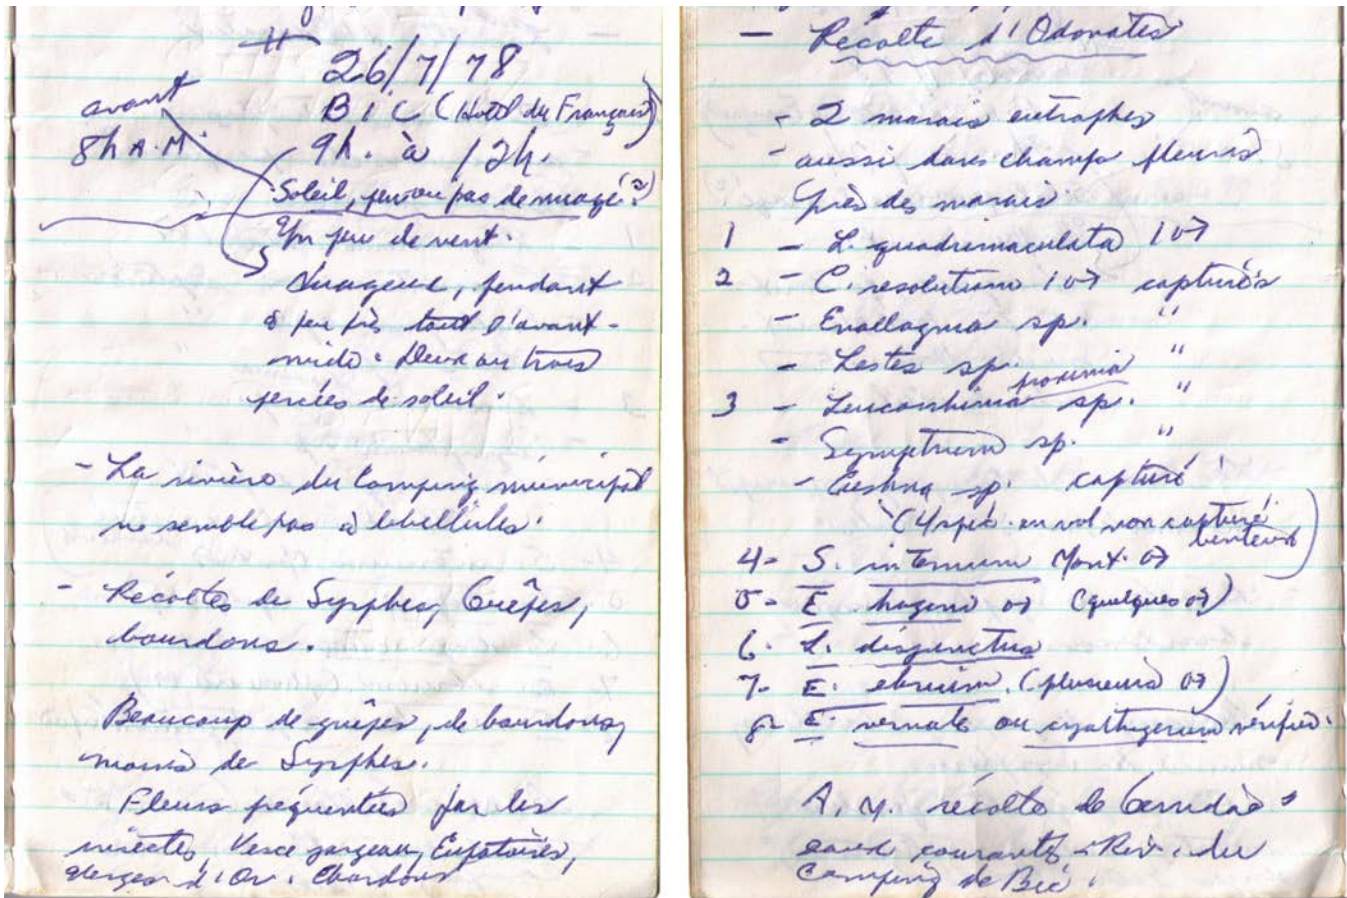 26/7/78
avant
8h A.M.
BIC (Hotel du Français)
9h. à 12h.
Soleil, peu ou pas de nuage (?)
Un peu de vent.
Nuageux, pendant
à peu près tout l'avant-
midi. Deux ou trois
percées de soleil.
- La rivière du Camping municipal
ne semble pas à libellules.
- Récoltes de Syrphes, Guêpes,
bourdons.
Beaucoup de guêpes, de bourdons,
moins de Syrphes.
Fleurs fréquentées par les
insectes, Verce Eupatoires,
Verges d'Or. Chardons
- Récolte d'Odonates
- 2 marais eutrophes
- aussi dans champs fleuris
près des marais
1 - L. quadrimaculata 1♂
2 - C. resolutum 1♂ capturés
- Enallagma sp. "
- Lestes sp. "
proxima
3 - Leucorrhinia sp. "
- Sympetrum sp. "
- Aeshna sp. capturé
(4 spéc. en vol non capturé
4- S. internum Mont. ♂
5- E hageni ♂ (quelques ♂)
6. L. disjunctus
7- E. ebrium. (plusieurs ♂)
8- E. vernale ou cyathigerum vérifier.
A. M. récolte de Gerridae
eaux courantes - Riv. du
Camping de Bic.